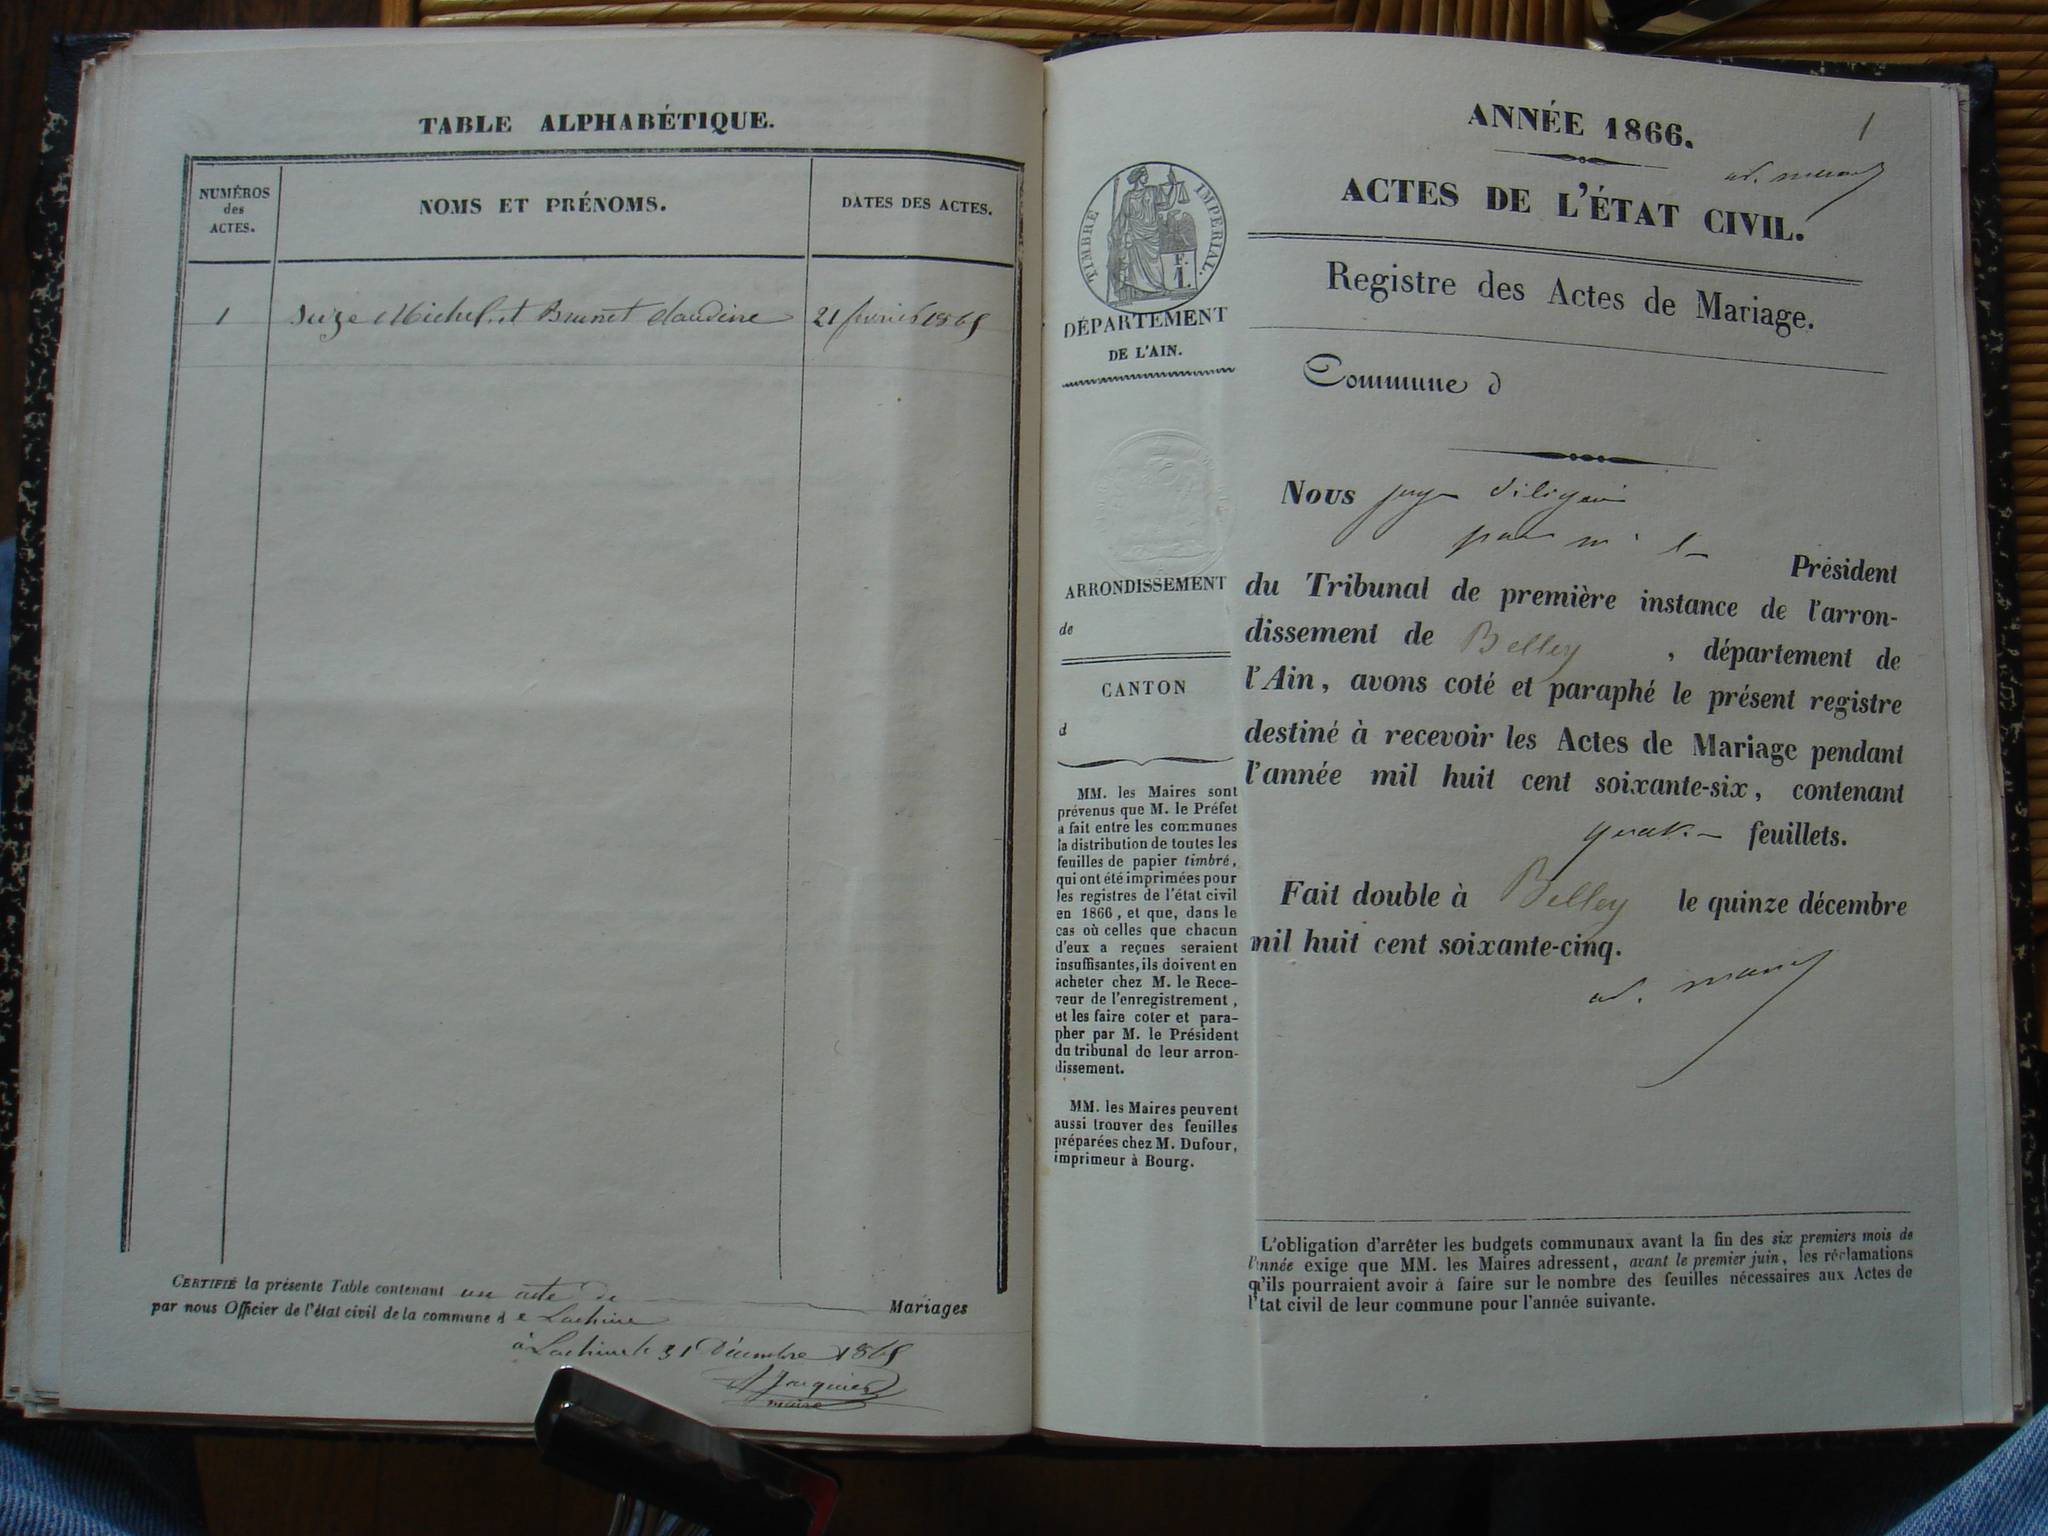 TABLE ALPHABÉTIQUE.
NUMÉROS
des
ACTES.
NOMS ET PRÉNOMS.
DATES DES ACTES.
1 Suze Michel et Brunet Claudine 21 février 1865
CERTIFIÉ la présente Table contenant un acte de Mariages
par nous Officier de l'état civil de la commune d e Lachine
à Lachine le 31 Décembre 1865
Jacquier
maire
1
ANNÉE 1866.
ACTES DE L'ÉTAT CIVIL.
Registre des Actes de Mariage.
TIMBRE IMPÉRIAL.
F.
1.
DÉPARTEMENT
DE L'AIN.
Commune d
Nous juge
par m. le Président
du Tribunal de première instance de l'arron-
dissement de Belley , département de
l'Ain, avons coté et paraphé le présent registre
destiné à recevoir les Actes de Mariage pendant
l'année mil huit cent soixante-six, contenant
quatre feuillets.
Fait double à Belley le quinze décembre
mil huit cent soixante-cinq.
ARRONDISSEMENT
de
CANTON
d
MM. les Maires sont
prévenus que M. le Préfet
a fait entre les communes
la distribution de toutes les
feuilles de papier timbré,
qui ont été imprimées pour
les registres de l'état civil
en 1866, et que, dans le
cas où celles que chacun
d'eux a reçues seraient
insuffisantes, ils doivent en
acheter chez M. le Rece-
veur de l'enregistrement,
et les faire coter et para-
pher par M. le Président
du tribunal de leur arron-
dissement.
MM. les Maires peuvent
aussi trouver des feuilles
préparées chez M. Dufour,
imprimeur à Bourg.
L'obligation d'arrêter les budgets communaux avant la fin des six premiers mois de
l'année exige que MM. les Maires adressent, avant le premier juin, les réclamations
qu'ils pourraient avoir à faire sur le nombre des feuilles nécessaires aux Actes de
l'tat civil de leur commune pour l'année suivante.